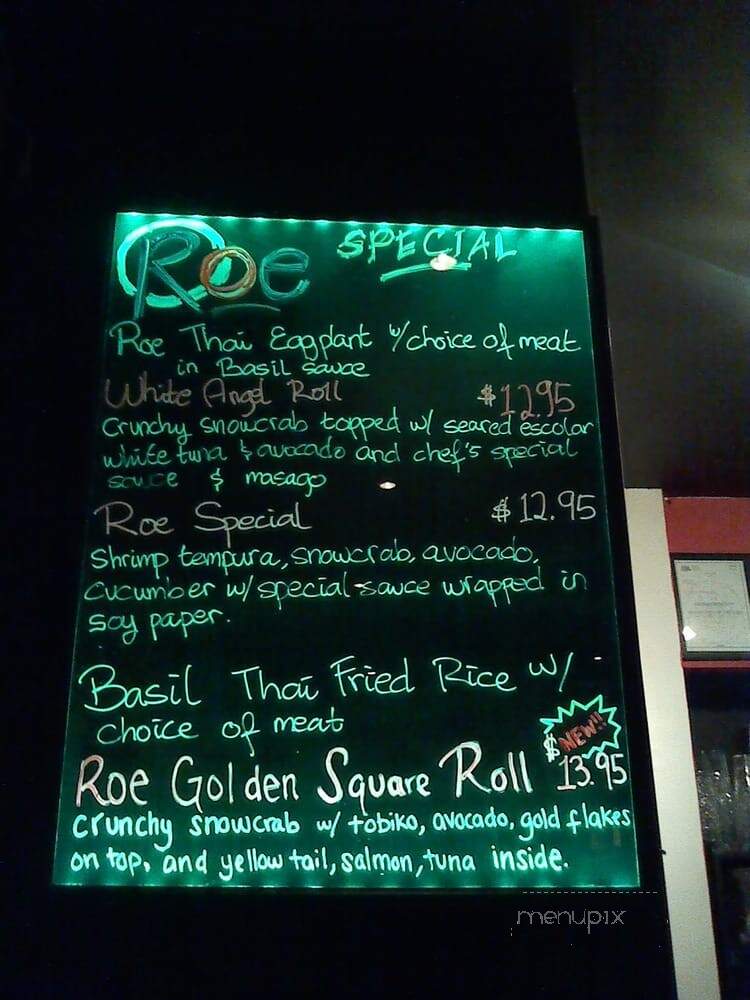 Roe SPECIAL
Roe Thai Eggplant w/choice of meat
in Basil sauce
White Angel Roll $12.95
Crunchy snowcrab topped w/ seared escolar
white tuna & avocado and chef's special
sauce & masago
Roe Special $12.95
Shrimp tempura, snowcrab, avocado,
cucumber w/special sauce wrapped in
soy paper.
Basil Thai Fried Rice w/
choice of meat
NEW!!
Roe Golden Square Roll $13.95
crunchy snowcrab w/ tobiko, avocado, gold flakes
on top, and yellow tail, salmon, tuna inside.
menupix